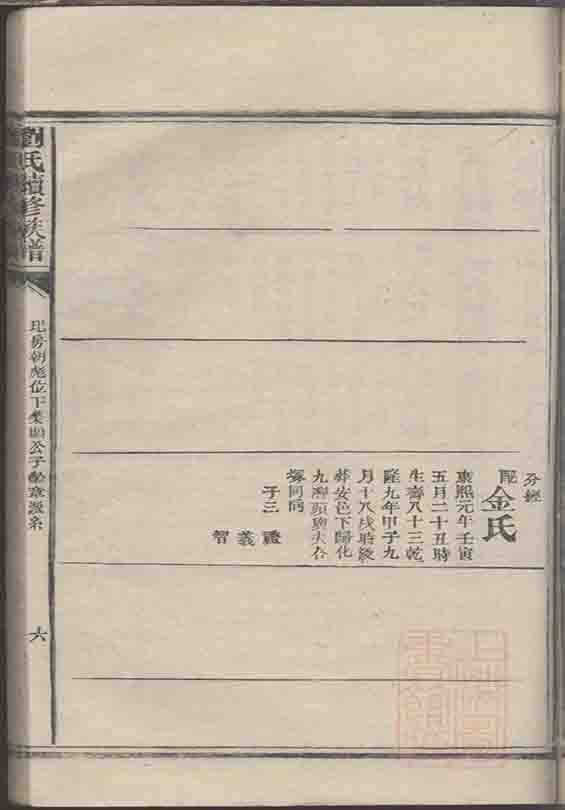 分經
配金氏
康熙元年壬寅
五月二十丑時
生壽八十三乾
隆九年甲子九
月十八戌時歿
葬安邑下歸化
九灣頭與夫合
塚同向
子三 禮 義 智
劉氏續修族譜
房朝彪位下 公子 章派系
六